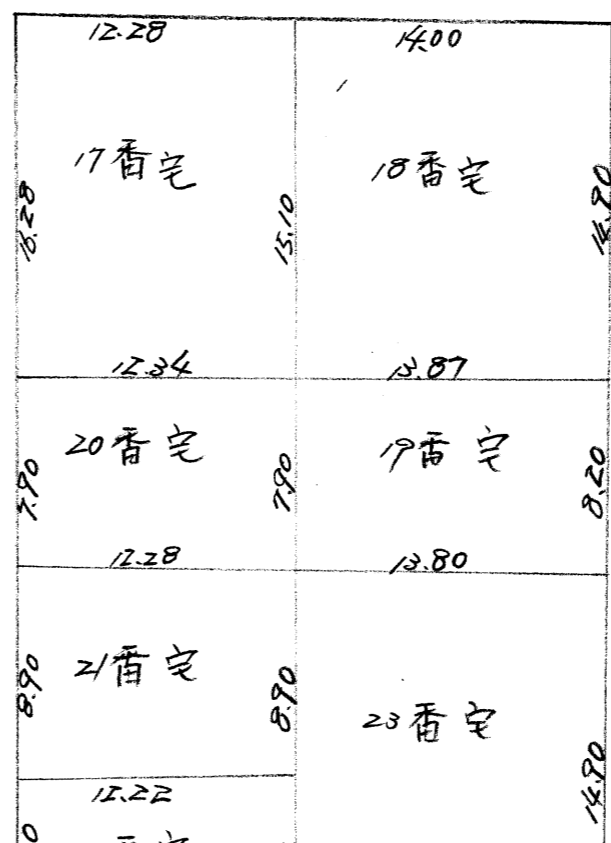 12.28
14.00
17番宅
18番宅
15.10
14.90
12.34
13.87
20番宅
19番宅
7.90
7.90
8.20
12.28
13.80
21番宅
23番宅
8.90
8.90
14.90
12.22